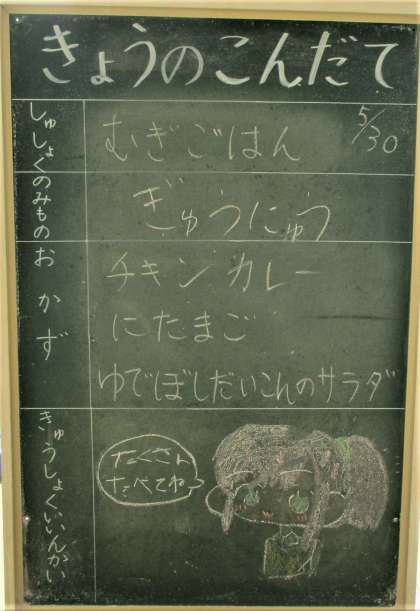 きょうのこんだて
5/30
しゅしょく
むぎごはん
のみもの
ぎゅうにゅう
おかず
チキンカレー
にたまご
ゆでぼしだいこんのサラダ
きゅうしょくいいんかい
たくさん
たべてね